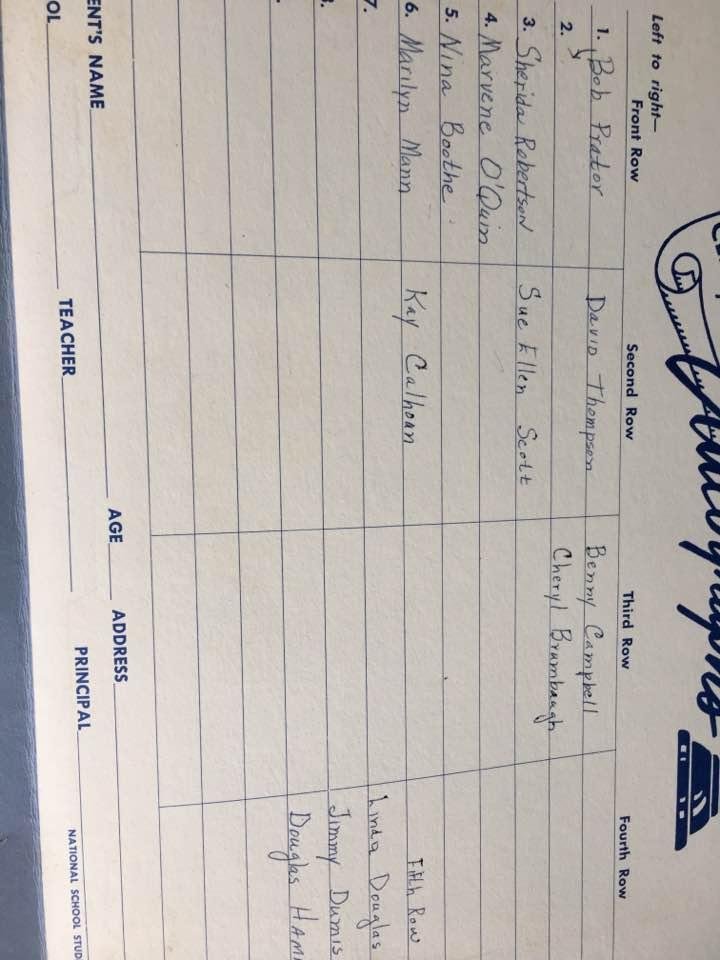 Autographs
Left to right—
Front Row Second Row Third Row Fourth Row
1. Bob Prator David Thompson Benny Campbell
2. Cheryl Brumbaugh
3. Sherida Robertson Sue Ellen Scott
4. Marvene O'Quin
5. Nina Boothe
6. Marilyn Mann Kay Calhoun Fifth Row
7. Linda Douglas
Jimmy Dumis
Douglas HAM
ENT'S NAME AGE ADDRESS
OL TEACHER PRINCIPAL
NATIONAL SCHOOL STUD